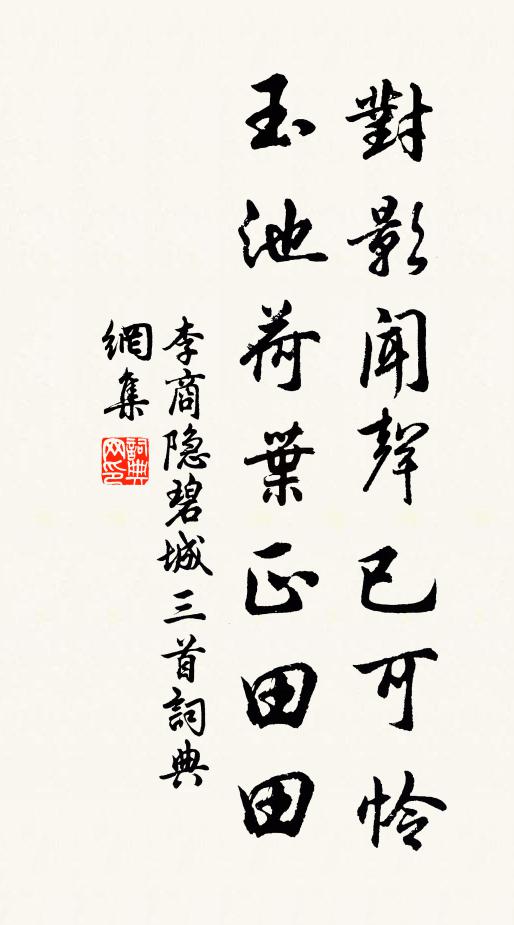 對影聞聲已可憐
玉池荷葉正田田
李商隐碧城三首詞典
網集
詞典网印